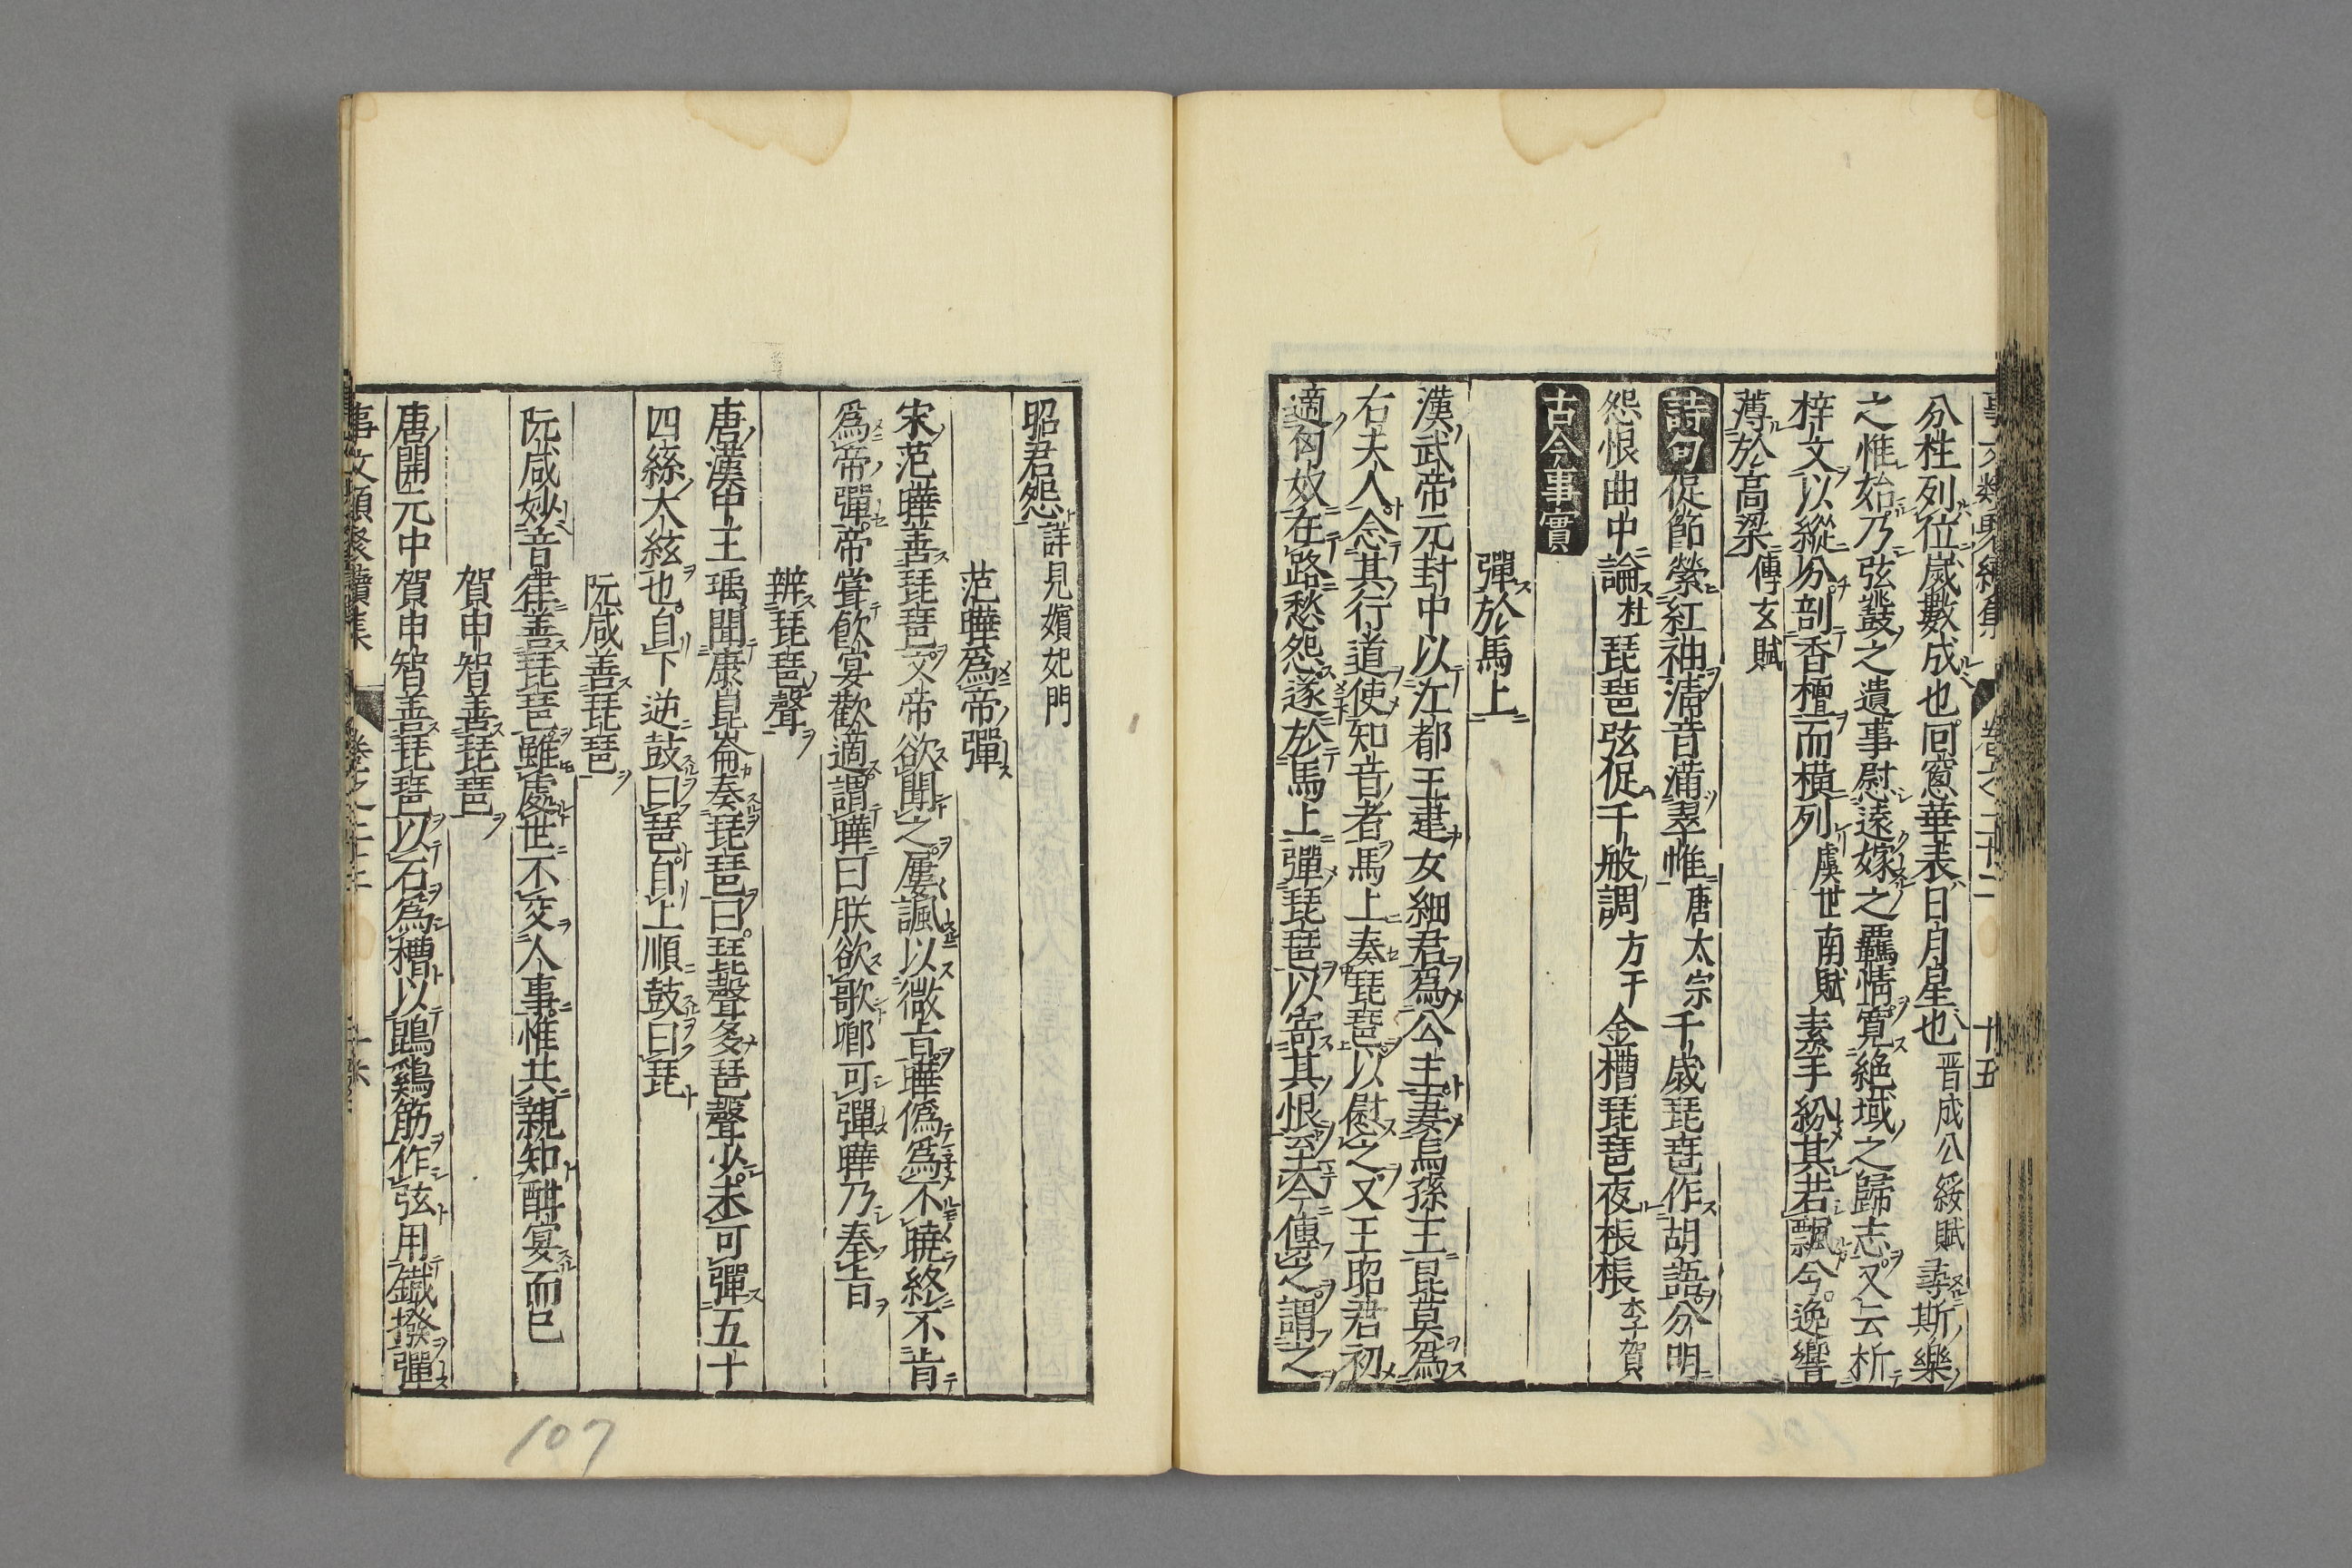 事文類聚續集 卷之二十二 十五
分柱列位歲數成也回窓華表日月星也晋成公綏賦尋斯樂
之惟始乃弦鼗之遺事慰遠嫁之羈情寬絶域之歸志又云析
梓文以縱分剖香檀而橫列虞世南賦素手紛其若飄兮逸響
薄於高梁傅玄賦
詩句促節縈紅袖清音滿翠帷唐太宗千歳琵琶作胡語分明
怨恨曲中論杜琵琶弦促千般調方干金槽琵琶夜棖棖李賀
古今事實
彈於馬上
漢武帝元封中以江都王建女細君爲公主妻烏孫王昆莫爲
右夫人念其行道使知音者馬上奏琵琶以慰之又王昭君初
適匈奴在路愁怨遂於馬上彈琵琶以寄其恨至今傳之謂之
昭君怨詳見嬪妃門
范曄爲帝彈
宋范曄善琵琶文帝欲聞之屢諷以微旨曄僞爲不曉終不肯
爲帝彈帝嘗飮宴歡適謂曄曰朕欲歌卿可彈曄乃奉旨
辨琵琶聲
唐漢中王瑀聞康昆崙奏琵琶曰琵聲多琶聲少未可彈五十
四絲大絃也自下逆鼓曰琶自上順鼓曰琵
阮咸善琵琶
阮咸妙音律善琵琶雖處世不交人事惟共親知酣宴而已
賀申智善琵琶
唐開元中賀申智善琵琶以石爲槽以鵾鷄筋作弦用鐵撥彈
事文類聚續集 卷之二十二
107